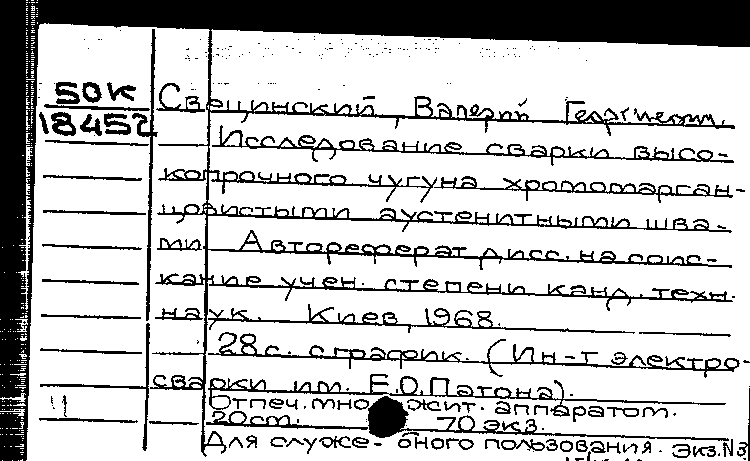 50К
18452
Свещинский, Валерий Георгиевич.
Исследование сварки высо-
копрочного чугуна хромомарган-
цовистыми аустенитными шва-
ми. Автореферат дисс. на соис-
кание учен. степени канд. техн.
наук. Киев, 1968.
28с. с график. (Ин-т электро-
сварки им. Е.О.Патона).
Отпеч. множит. аппаратом.
20см. 70 экз.
Для служе- бного пользования. Экз.N3